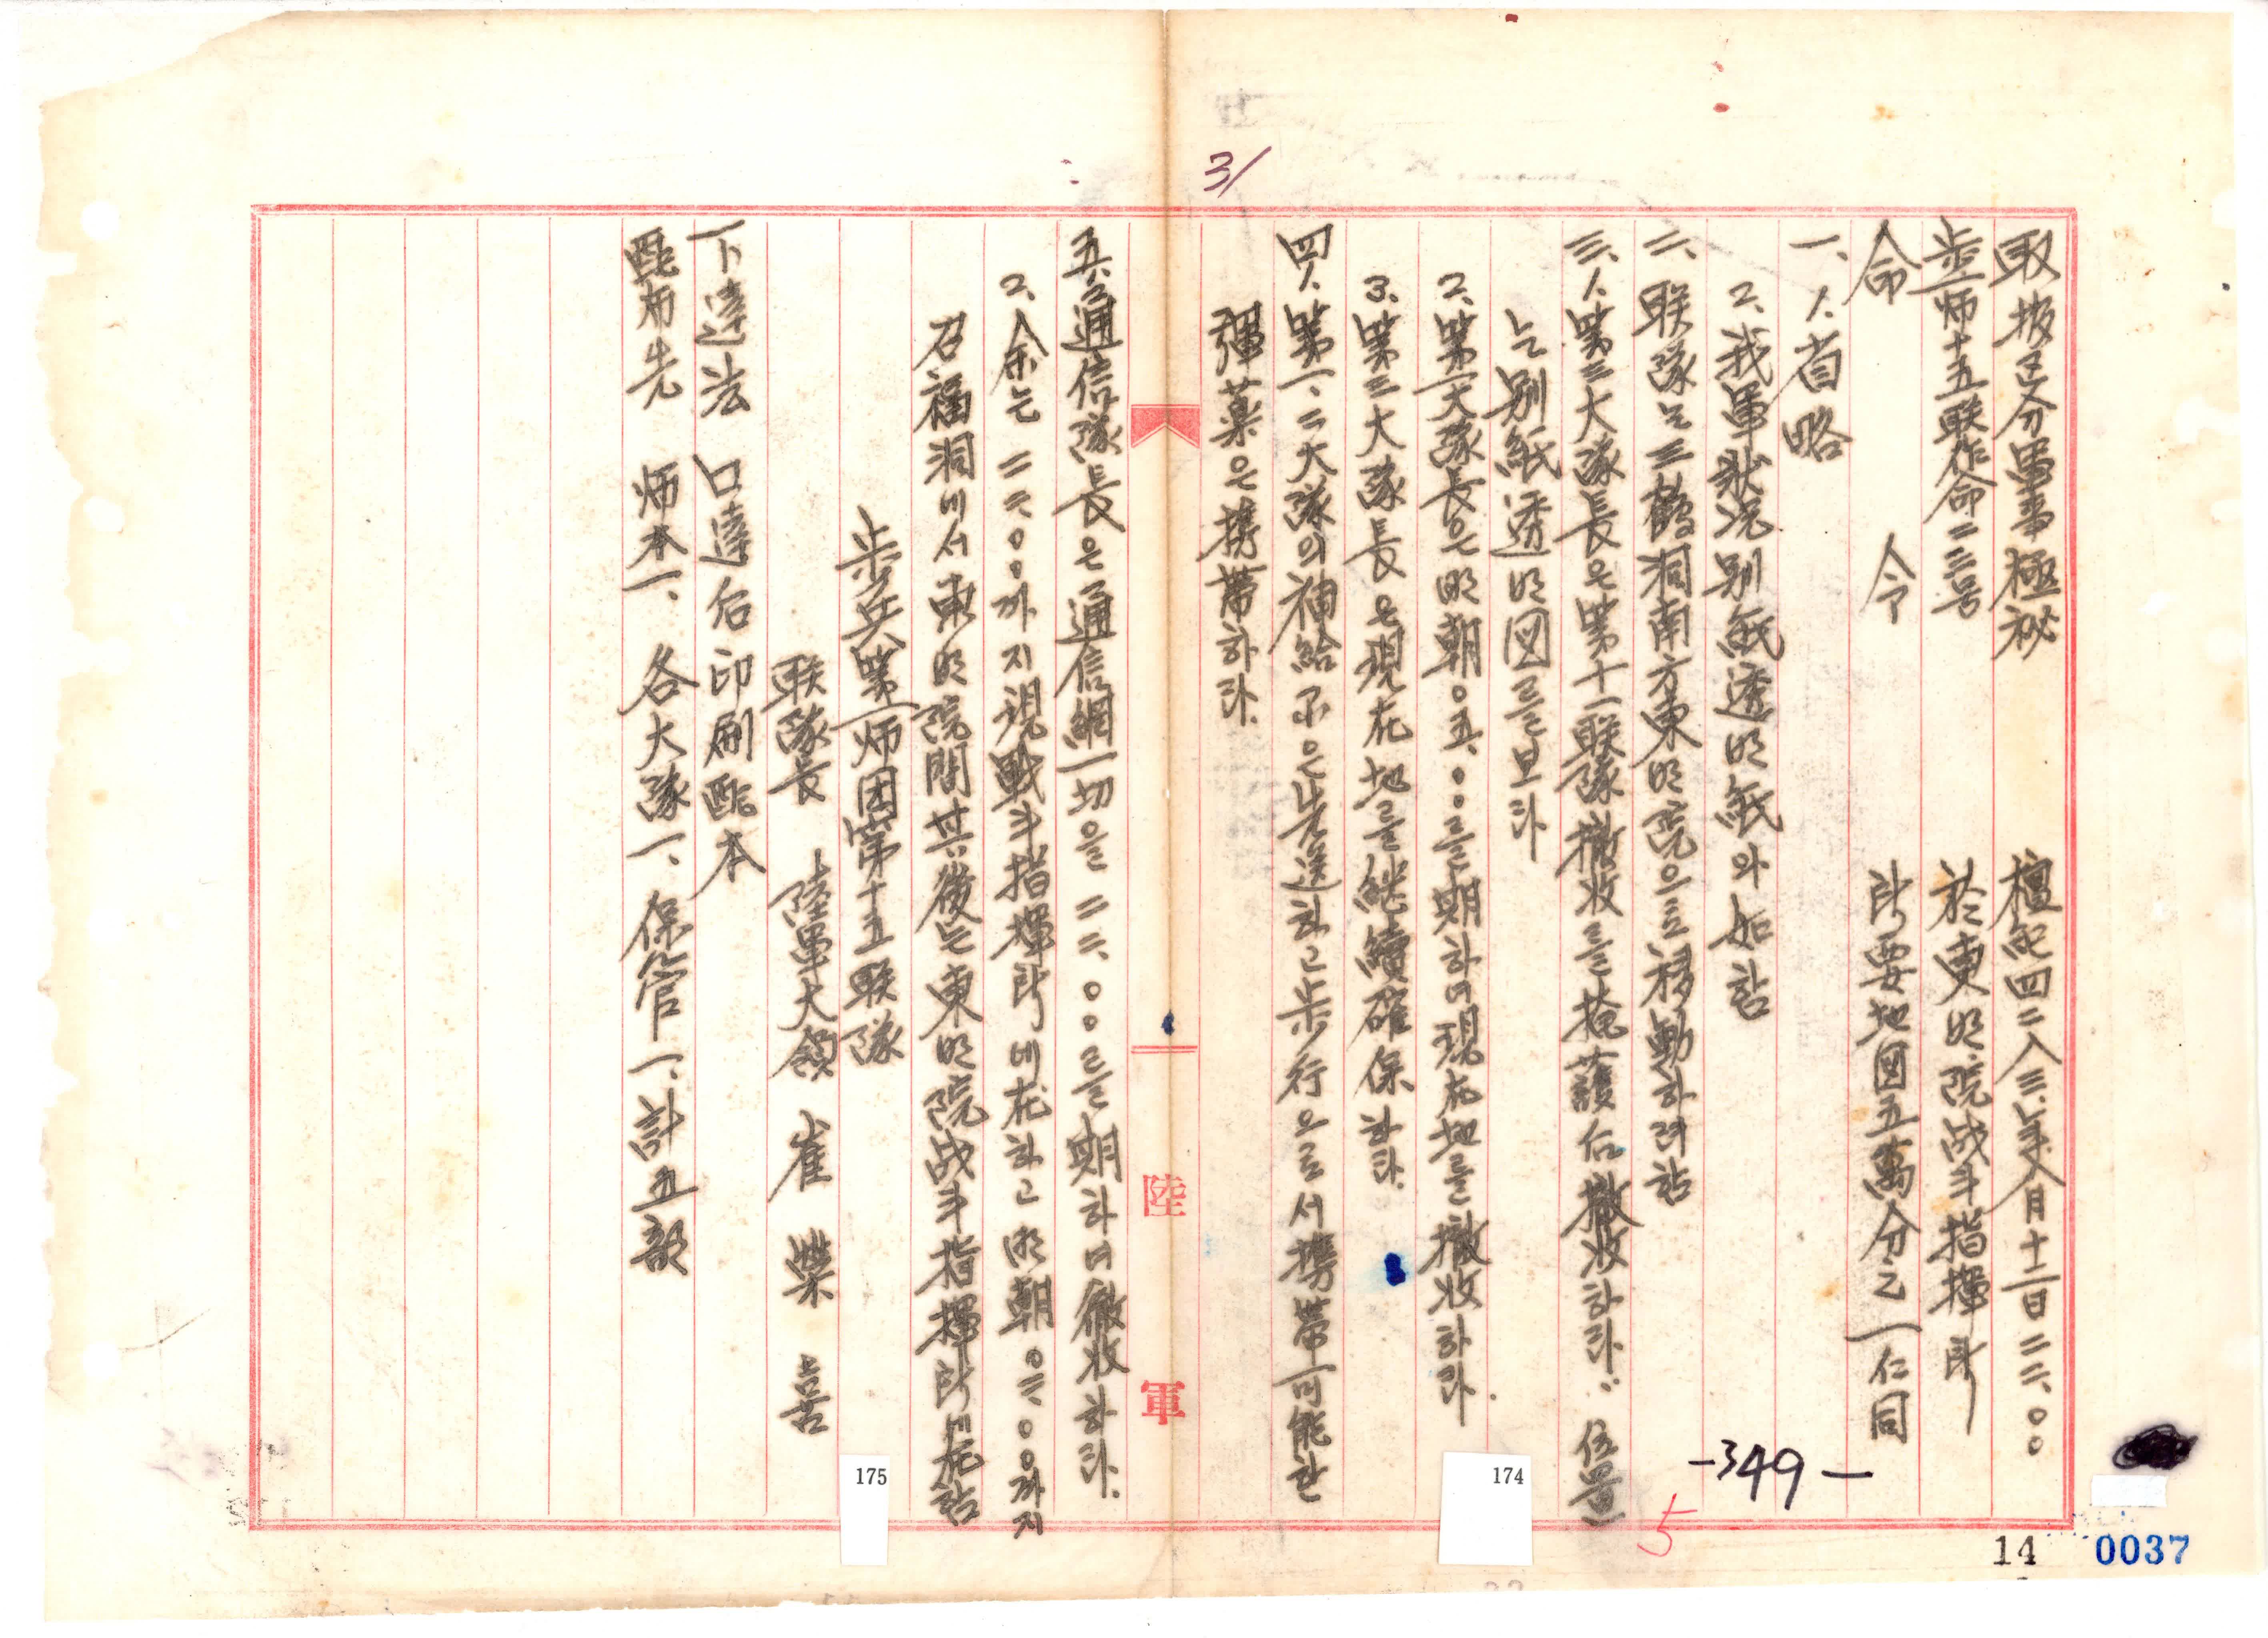 取扱区分軍事極秘 檀紀四二八三年八月十二日二二.〇〇
步一師十五联作命二三号 於東明院战斗指揮所
命 令 所要地図五萬分之一仁同
一、1.省略
2.我軍狀況別紙透明紙와如함
二、联隊는三鶴洞南方東明院으로移動하려함
三、1.第二大隊長은第十一联隊撤收를掩護后撤收하라. 位置
는別紙透明図를보라
2.第一大隊長은明朝〇五.〇〇를期하여現在地를撤收하라.
3.第三大隊長은現在地를継續確保하라.
四、1.第一、二大隊의補給品은先送하고步行으로서携帶可能한
彈薬은携帶하라.
五、1.通信隊長은通信網一切을二二.〇〇를期하여撤收하라.
2.余는二二〇〇까지現戰斗指揮所에在하고明朝〇三〇〇까지
召福洞에서東明院間其後는東明院战斗指揮所에在함
步兵第一师団第十五联隊
联隊長 陸軍大領 崔榮喜
下達法 口達后印刷配本
配布先 师本一、各大隊一、保管一、計五部
陸軍
31
-349-
5
174
175
14
0037